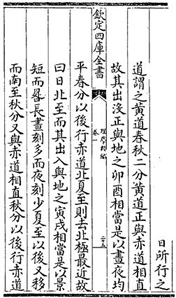 日所行之
道謂之黃道春秋二分黃道正與赤道相直
故其出沒正與地之卯酉相當是以晝夜均
平春分以後行赤道北夏至則去北極最近故
欽定四庫全書
卷一
曰日北至而其出入與地之寅戌相當是以景
短而晷長晝刻多而夜刻少夏至以後又移
而南至秋分又與赤道相直秋分以後行赤道